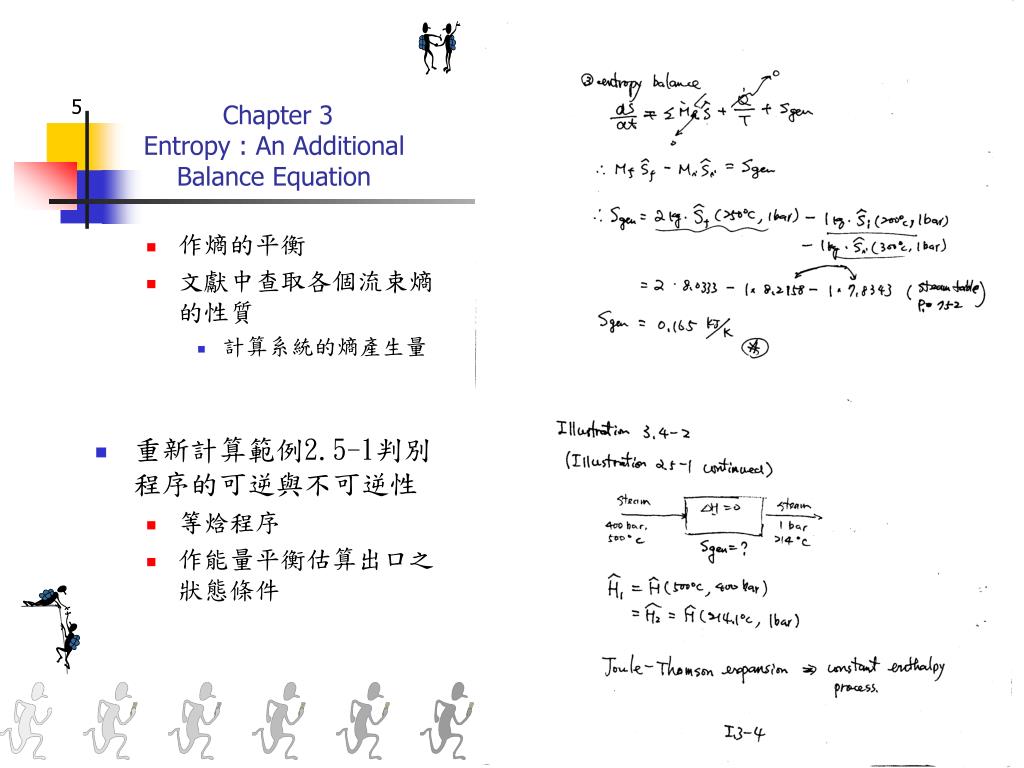 5
Chapter 3
Entropy : An Additional
Balance Equation
作熵的平衡
文獻中查取各個流束熵
的性質
計算系統的熵產生量
重新計算範例2.5-1判別
程序的可逆與不可逆性
等焓程序
作能量平衡估算出口之
狀態條件
③ entropy balance
dS/dt = ΣṀₖŜ + Q̇/T + Sgen
0
0
∴ M_f Ŝ_f - M_i Ŝ_i = Sgen
∴ Sgen = 2kg · Ŝ_f (250°C, 1bar) - 1kg · Ŝ_i (200°C, 1bar)
- 1kg · Ŝ_i (300°C, 1bar)
= 2 · 8.0333 - 1 × 8.2158 - 1 × 7.8343 (steam table
P. 752)
Sgen = 0.165 kJ/K
Illustration 3.4-2
(Illustration 2.5-1 continued)
steam
ΔH = 0
steam
400 bar,
500°C
1 bar
214°C
Sgen = ?
Ĥ₁ = Ĥ (500°C, 400 bar)
= Ĥ₂ = Ĥ (214.1°C, 1bar)
Joule-Thomson expansion ⇒ constant enthalpy
process.
I.3-4